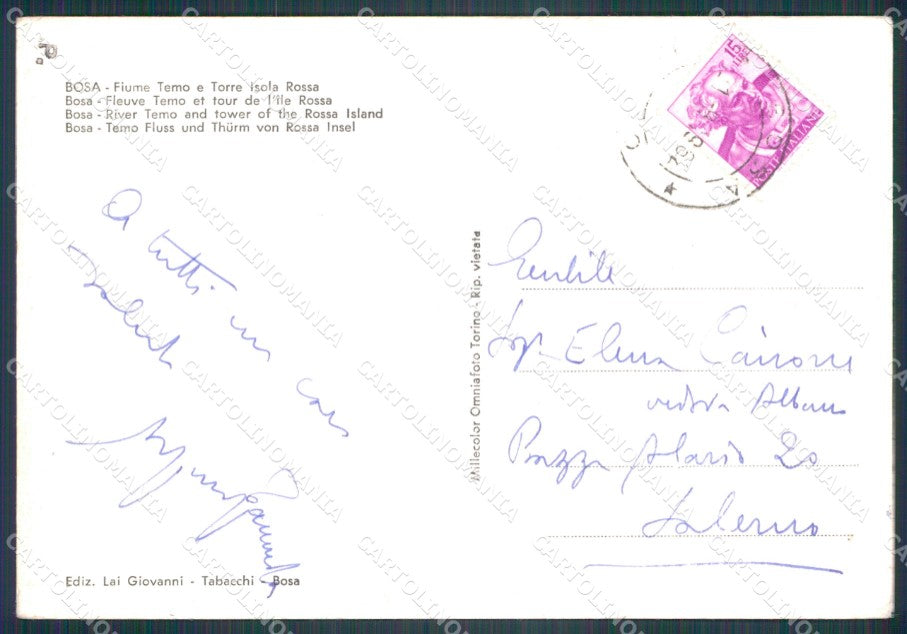 BOSA - Fiume Temo e Torre Isola Rossa
Bosa - Fleuve Temo et tour de l'île Rossa
Bosa - River Temo and tower of the Rossa Island
Bosa - Temo Fluss und Thürm von Rossa Insel
A tutti un caro
saluto
Ediz. Lai Giovanni - Tabacchi - Bosa
Millecolor Omniafoto Torino - Rip. vietata
15 LIRE
POSTE ITALIANE
Gentile
Sig.ra Elena
vedova Albano
Piazza Alario 20
Salerno
CARTOLINOMANIA